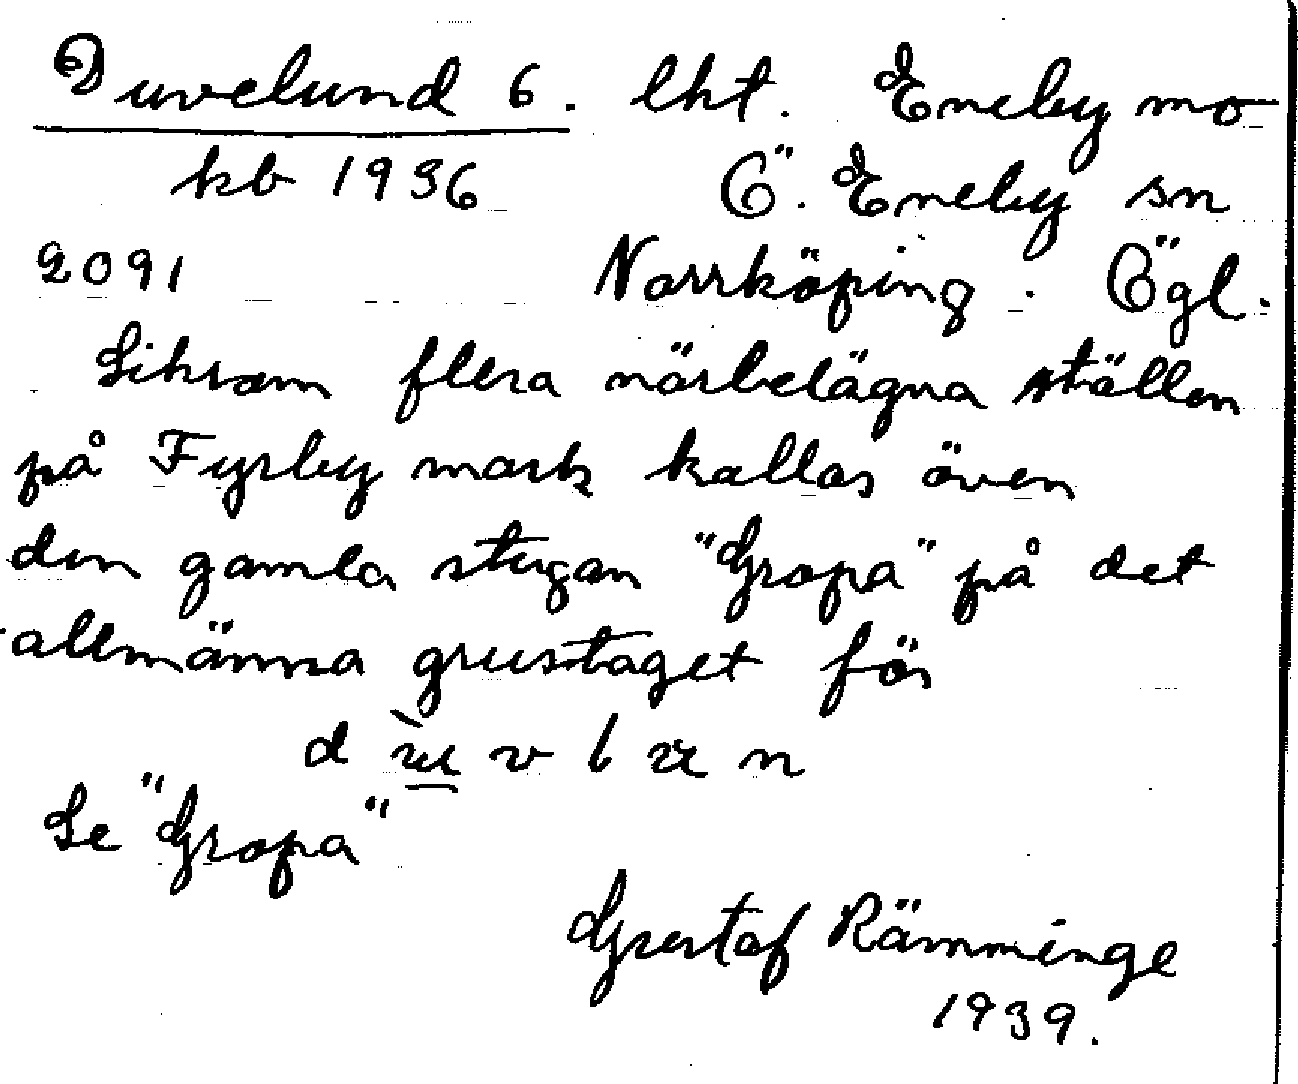 Duvelund 6. lht. Eneby mo
kb 1936 Ö. Eneby sn
2091 Norrköping. Ögl.
Liksom flera närbelägna ställen
på Fyrby mark kallas även
den gamla stugan "Gropa" på det
allmänna grustaget för
d u v l u n
Se "Gropa"
Gustaf Rämminge
1939.